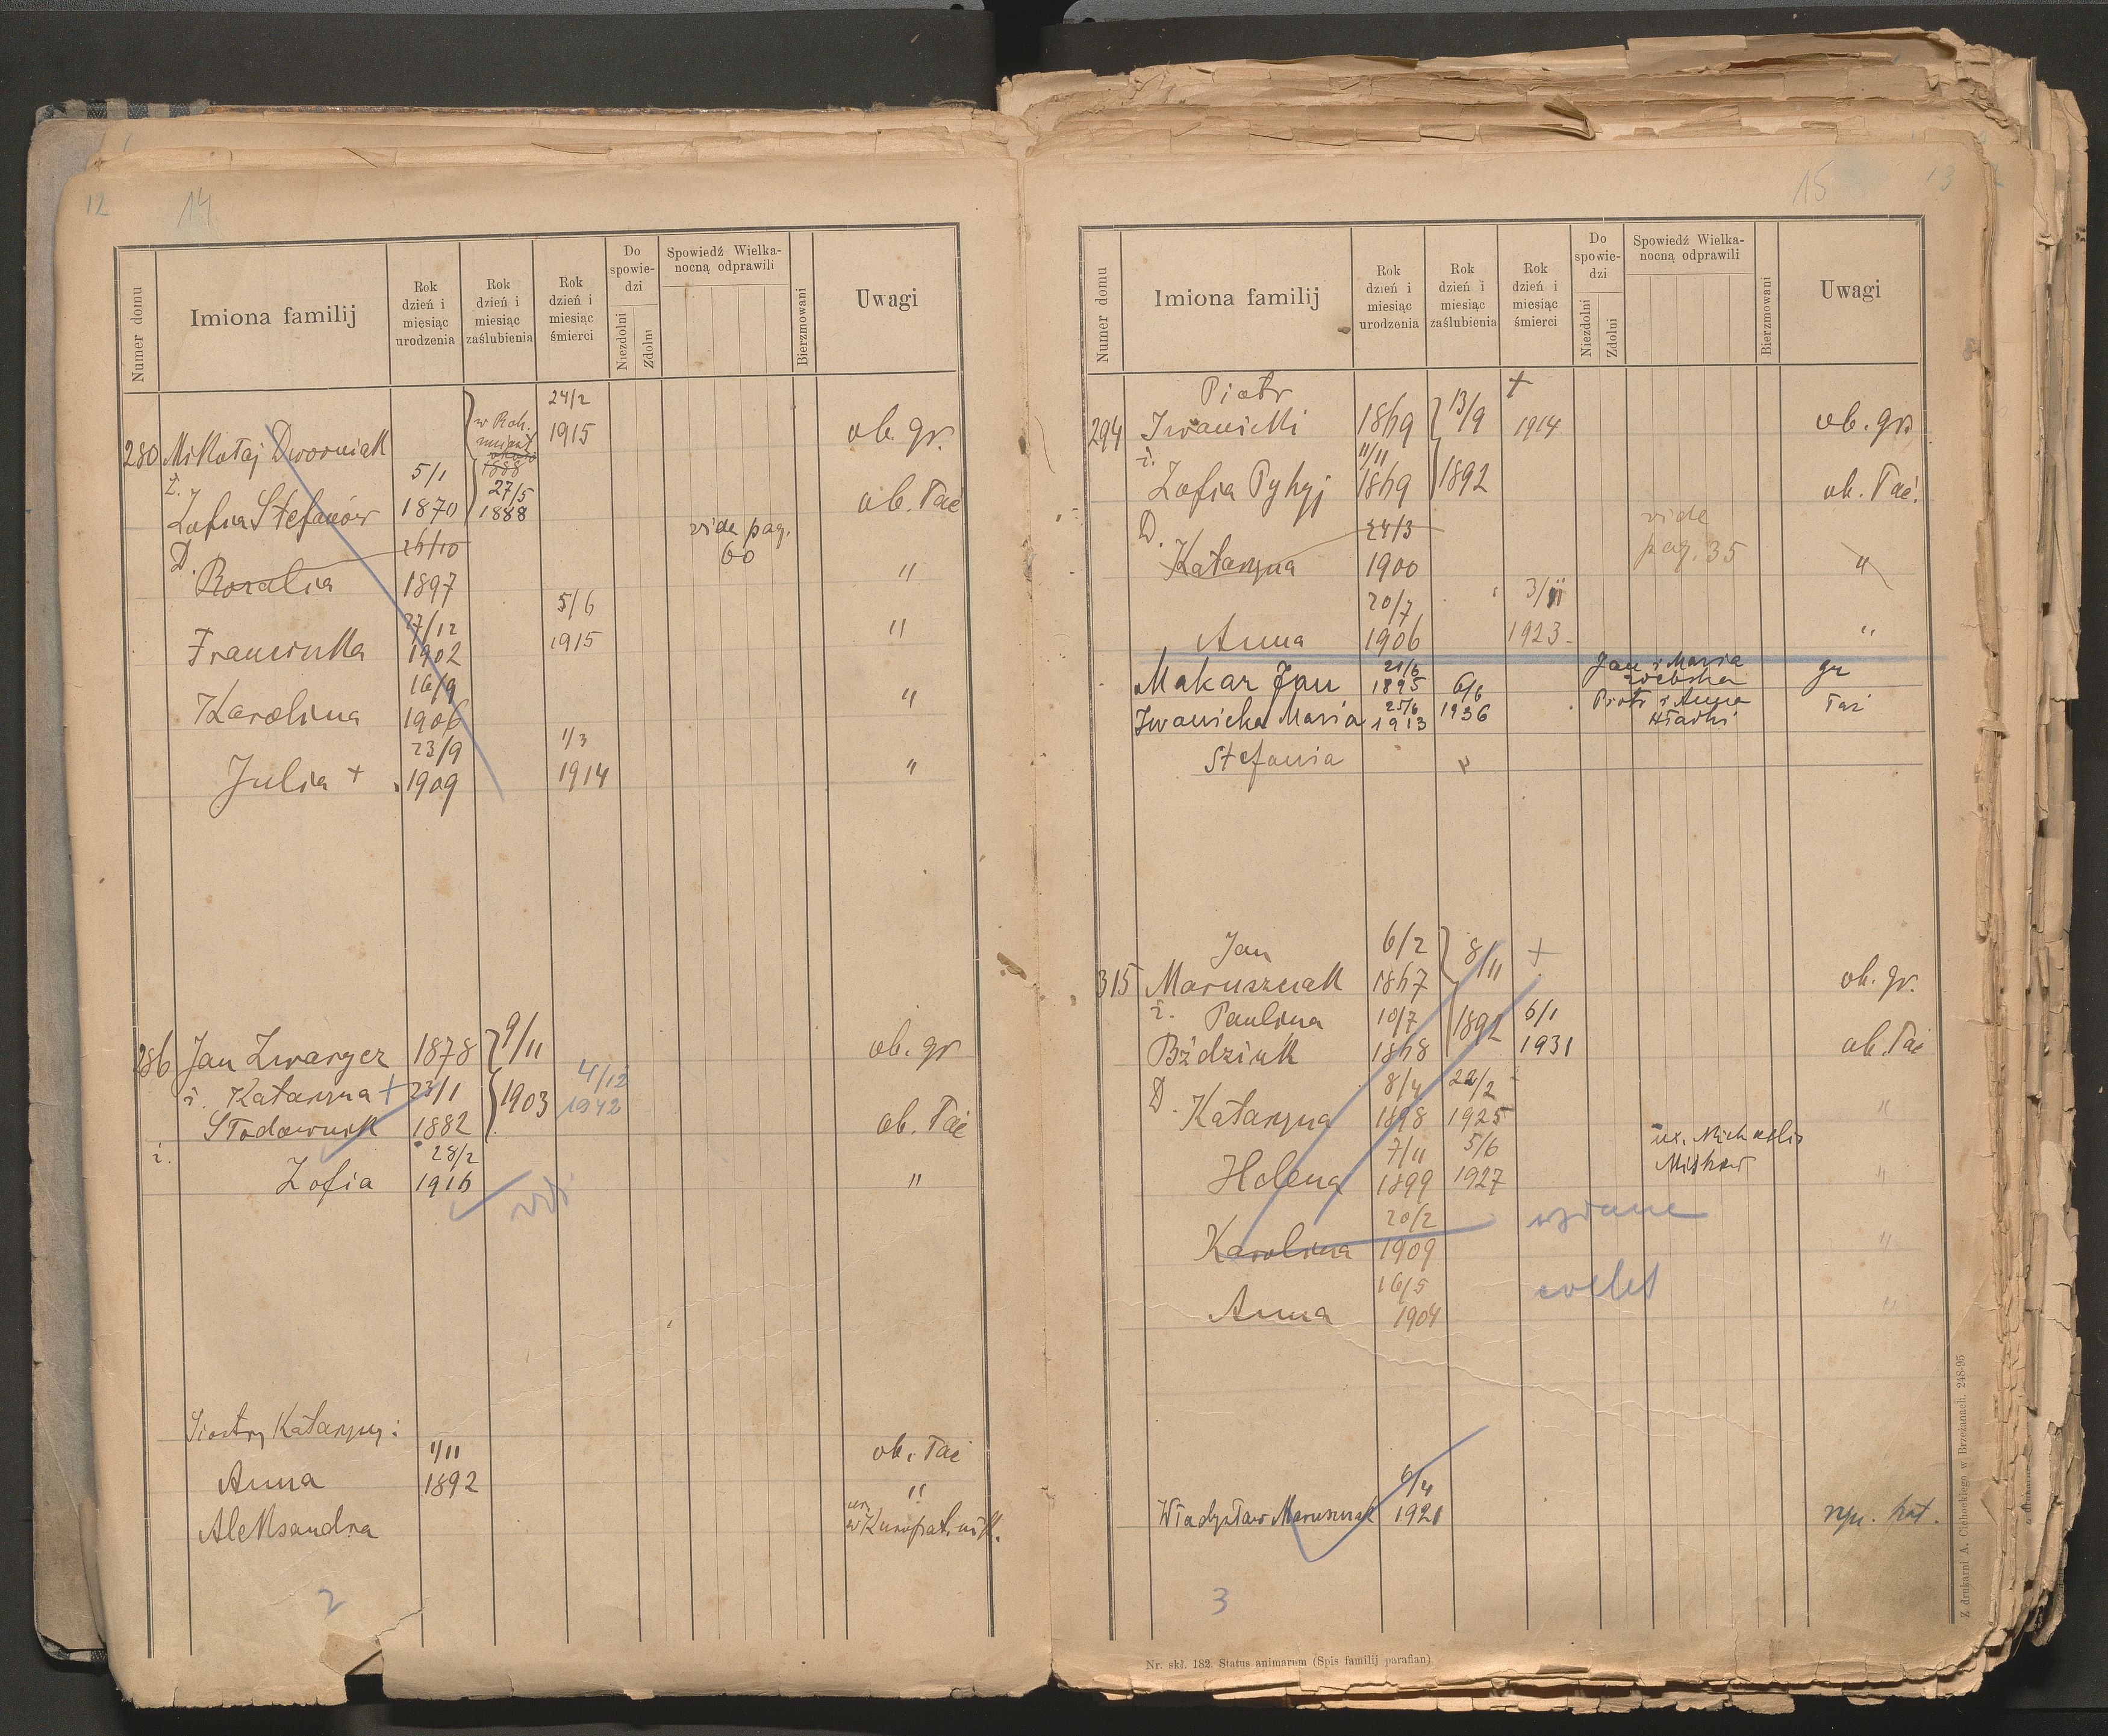 12 14
Numer domu
Imiona familij
Rok dzień i miesiąc urodzenia
Rok dzień i miesiąc zaślubienia
Rok dzień i miesiąc śmierci
Do spowiedzi
Niezdolni
Zdolni
Spowiedź Wielkanocną odprawili
Bierzmowani
Uwagi
24/2
280 Mikołaj Dworniak w Roh. 1915 ob. gr.
1888
ż. 5/1 27/5
Zofia Stefanów 1870 1888 ob. łać
D. 26/10 vide pag. 60
Rozalia 1897 "
27/12 5/6
Franciszka 1902 1915 "
16/9
Karolina 1906 "
23/9 1/3
Julia + 1909 1914 "
286 Jan Zwarycz 1878 9/11 ob. gr
ż. Katarzyna + 23/1 1903 4/12 1942
Słodownik 1882 ob. łać
28/2
Zofia 1916 "
Siostry Katarzyny:
1/11 ob. łać
Anna 1892 "
Aleksandra
2
15 13
Numer domu
Imiona familij
Rok dzień i miesiąc urodzenia
Rok dzień i miesiąc zaślubienia
Rok dzień i miesiąc śmierci
Do spowiedzi
Niezdolni
Zdolni
Spowiedź Wielkanocną odprawili
Bierzmowani
Uwagi
Piotr +
294 Iwanicki 1869 13/9 1914 ob. gr.
ż. 11/11
Zofia Pyhyj 1869 1892 ob. łać.
D. 24/3 vide
Katarzyna 1900 pag. 35 "
20/7 3/11
Anna 1906 1923 "
Makar Jan 21/6 1895 6/6 Jan i Maria gr
Iwanicka Maria 25/6 1913 1936 Piotr i Anna łać
Stefania
Jan 6/2 8/11 +
315 Maruszczak 1867 ob. gr.
ż. Paulina 10/7 1892 6/1
Bździuk 1868 1931 ob. łać
D. 8/4 22/2
Katarzyna 1898 1925 "
7/11 5/6 ux. Michaelis
Helena 1899 1927 "
20/2
Karolina 1909 "
16/5
Anna 1904 "
6/4
Władysław Maruszczak 1921
3
Nr. skł. 182. Status animarum (Spis familij parafian)
Z drukarni A. Cichockiego w Brzeżanach. 248-95